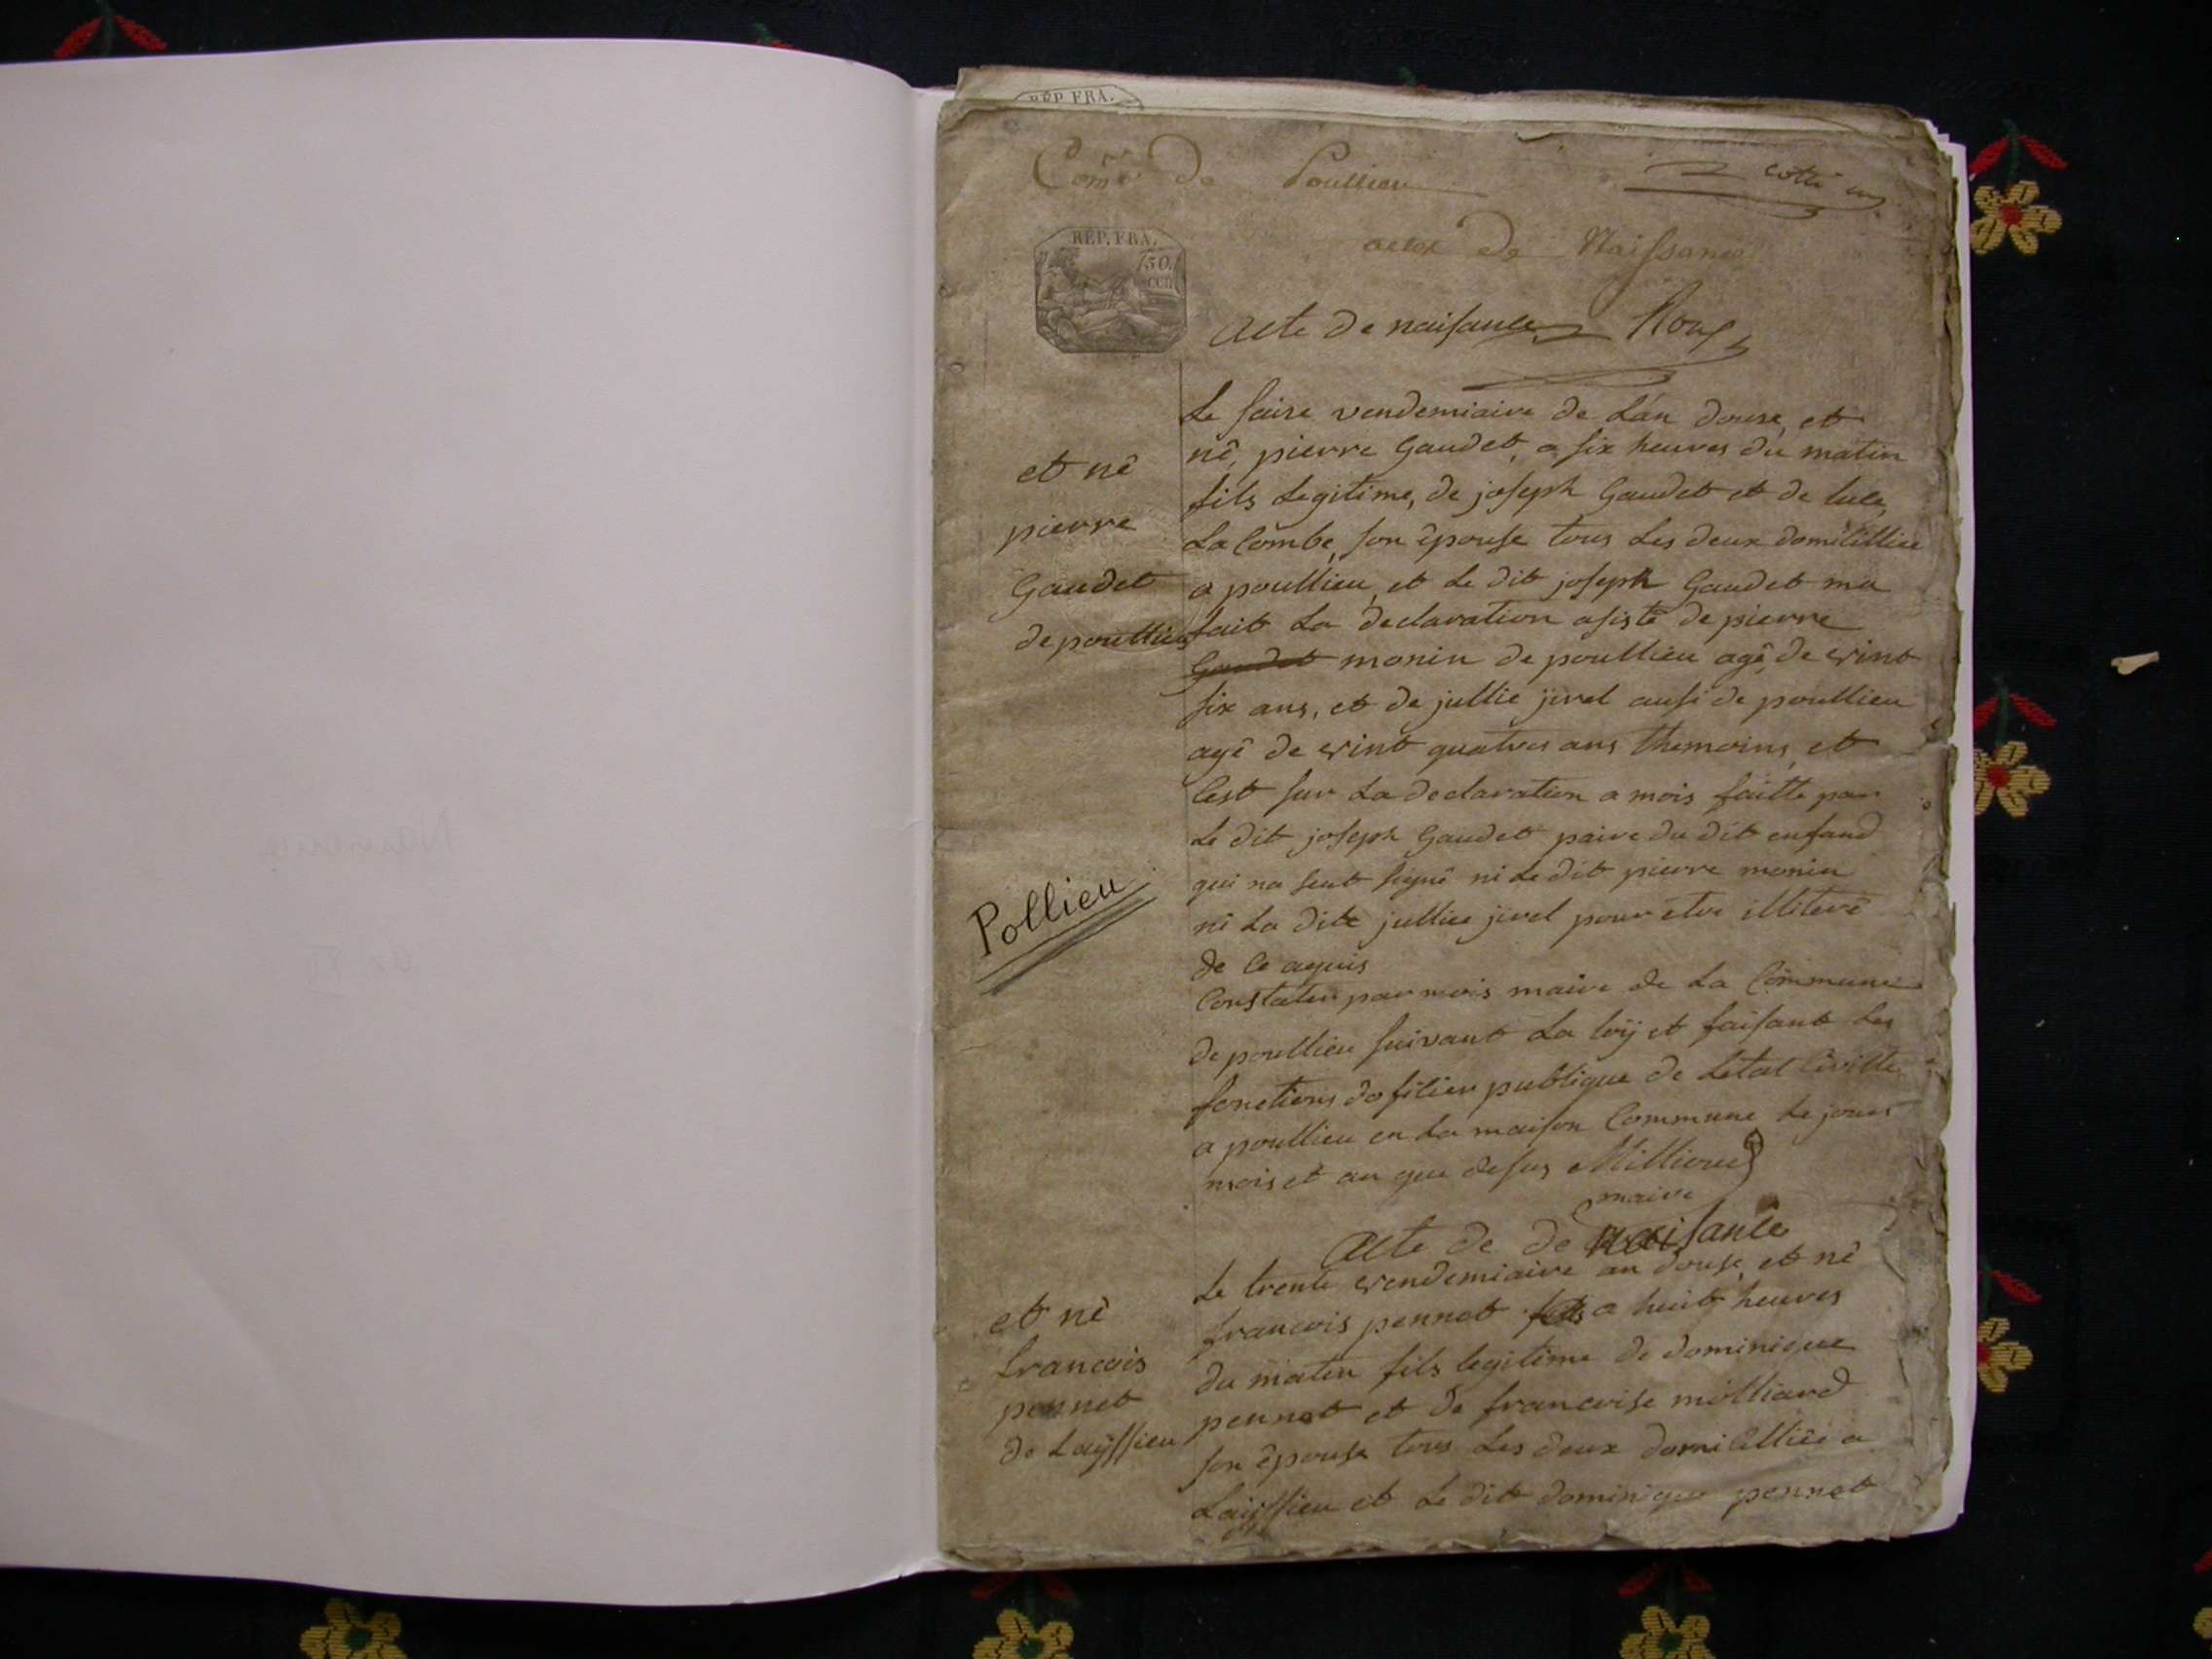 RÉP. FRA.
Com^e De Poullieu
cotté un
RÉP. FRA.
75 0.
CEN
actes De Naissance
acte De naisance Roux
et nê
pierre
Gaudet
de poullieu
Le saise vendemiaire de L'an douse, et
nê, pierre Gaudet, a six heures du matin
fils Legitime, de joseph Gaudet et de luce,
La Combe, son êpouse tous Les deux domicillies
a poullieu, et Le dit joseph Gaudet ma
fait La declaration asistê de pierre
Gaudet monin de poullieu agê, de vint
six ans, et de jullie jivel ausi de poullieu
agê de vint quatres ans themoins, et
Cest sur La declaration a mois faitte par
Le dit joseph Gaudet paire du dit enfand
qui na seut signê ni Le dit pierre monin
ni La dite jullie jivel pour etre illiterê
de Ce aquis
Constater par mois maire de La Commune
de poullieu suivant La loÿ et faisant Les
fonctions dofisier publique de Letat Civille
a poullieu en La maison Commune Le jour
mois et an que desus Millioud
maire
Pollieu
Acte de de naisance
et nê
francois
pennet
de Laÿssieu
Le trente vendemiaire an douse, et nê
francois pennet fils a huit heures
du matin fils legitime de dominique
pennet et de francoise milliand
son êpouse tous Les deux domicilliêe a
Laÿssieu et Le dit dominique pennet